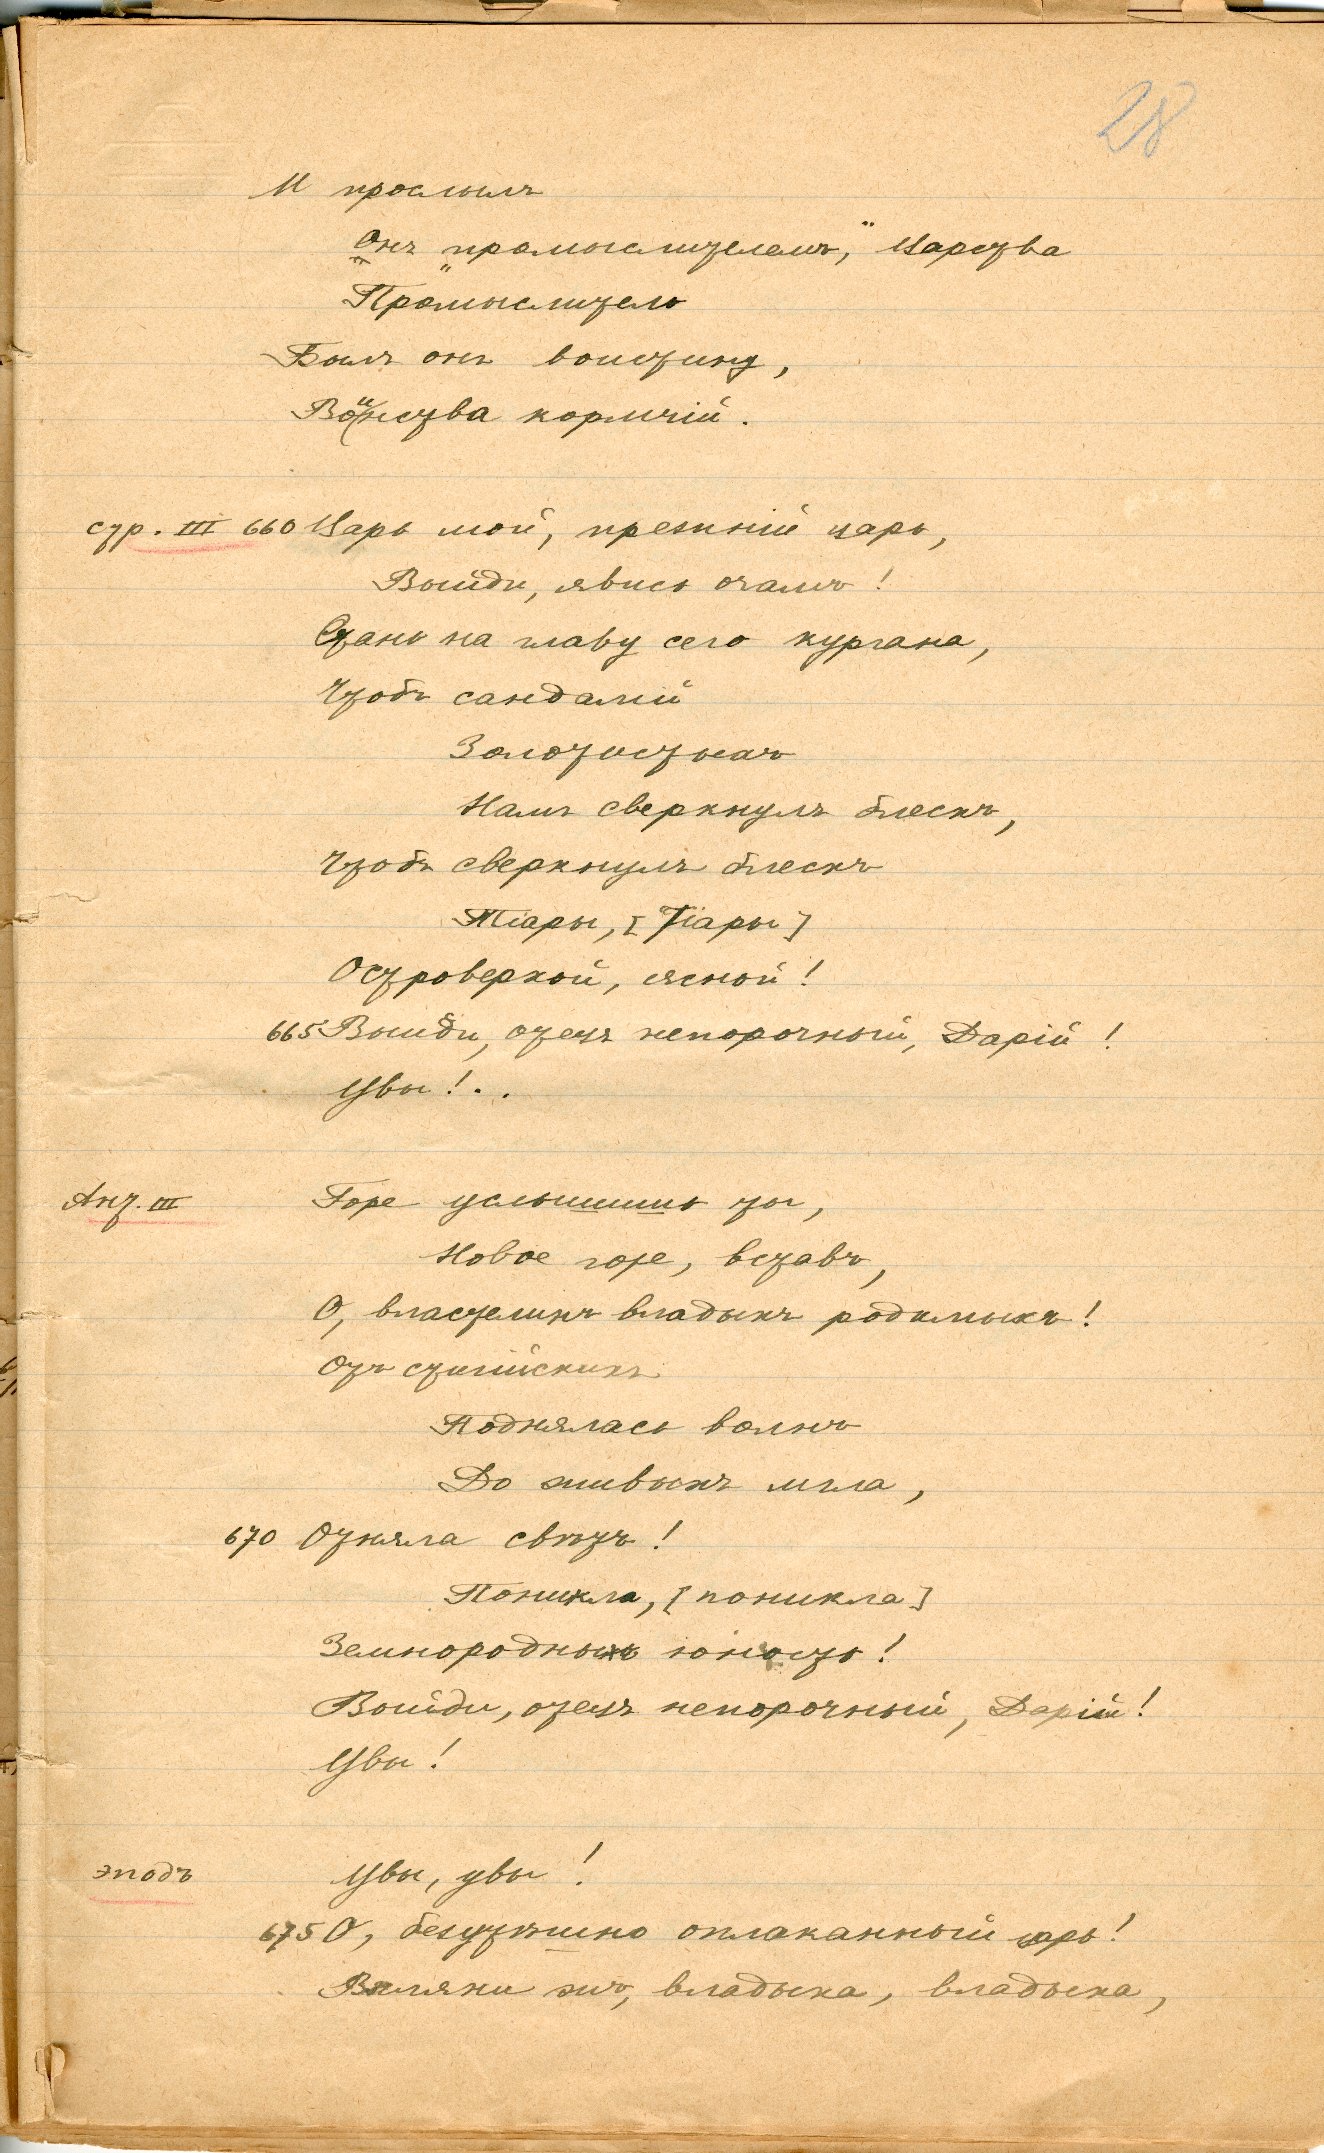 28
И прослылъ
Онъ „промыслителемъ,“ Царства
Промыслитель
Былъ онъ воистину,
Воинства кормчій.
стр. III 660 Царь мой, прежній царь,
Выйди, явись очамъ!
Стань на главу сего кургана,
Чтобъ сандалій
Золотистыхъ
Намъ сверкнулъ блескъ,
Чтобъ сверкнулъ блескъ
Тіары, [Тіары]
Островерхой, ясной!
665 Выйди, отецъ непорочный, Дарій!
Увы!..
Ант. III Горе услышишь ты,
Новое горе, вставъ,
О, властелинъ владыкъ родимыхъ!
Отъ стигійскихъ
Поднялась волнъ
До живыхъ мгла,
670 Отняла свѣтъ!
Поникла, [поникла]
Земнородныхъ юность!
Выйди, отецъ непорочный, Дарій!
Увы!
эподъ Увы, увы!
675 О, безутѣшно оплаканный царь!
Взгляни жъ, владыка, владыка,